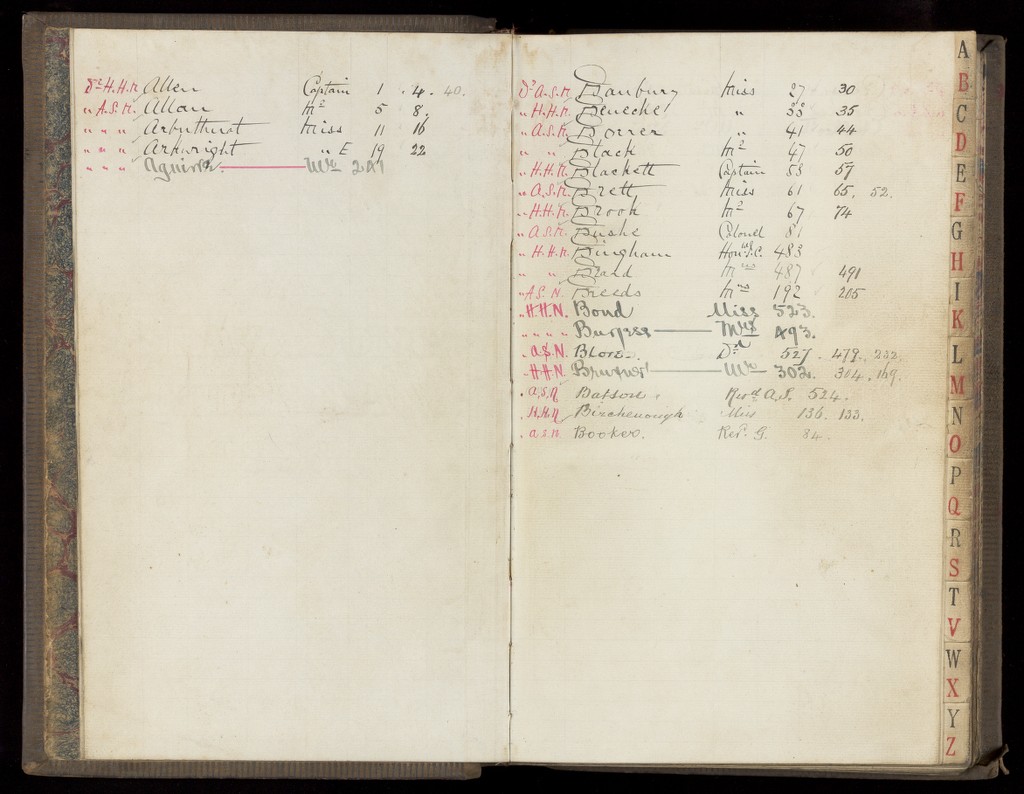 Dr H.H.N. Allen Captain 1 . 4 . 40.
" A.S.N. Allan Mr 5 8.
" " " Arbuthnot Miss 11 16
" " " Arkwright " E 19 22
" " " Mr 241
Dr A.S.N. Banbury Miss 27 30
" H.H.N. Benecke " 33 35
" A.S.N. Borrer " 41 44
" " Black Mr 47 50
" H.H.N. Blackett Captain 53 57
" A.S.N. Brett Miss 61 65. 52.
" H.H.N. Brook Mr 67 74
" A.S.N. Bushe Colonel 81
" H.H.N. Bingham Hon 483
" " Bland Mrs 487 491
" A.S.N. Breeds Mrs 192 205
" H.H.N. Bond Miss 523.
" " " " Burgess 493.
" A.S.N. Blore. Dr 527. 479. 232.
" H.H.N. 302. 304. 169.
" A.S.N. Batson Revd A.S. 524.
" H.H.N. Birchenough Miss 136. 133.
" A.S.N. Booker. Rev. G. 84.
A
B
C
D
E
F
G
H
I
K
L
M
N
O
P
Q
R
S
T
V
W
X
Y
Z